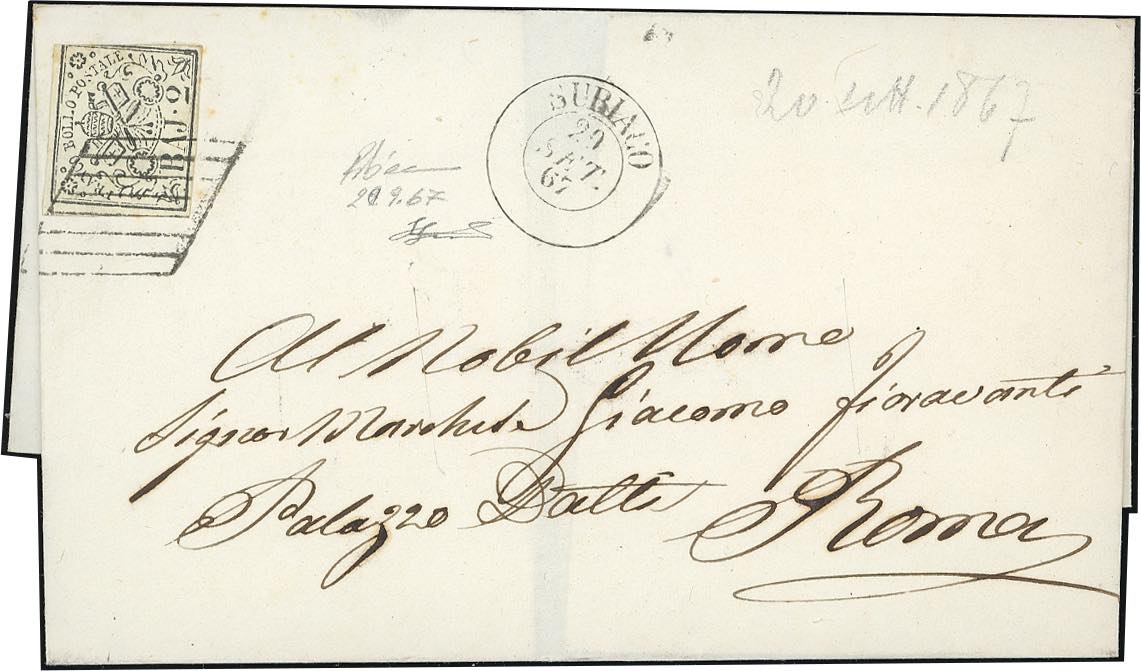 BOLLO POSTALE
BAJ. 2
SUBIACO
20
SET.
67
20 Sett. 1867
20.9.67
Al Nobil Uomo
Signor Marchese Giacomo Fioravanti
Palazzo Datti Roma